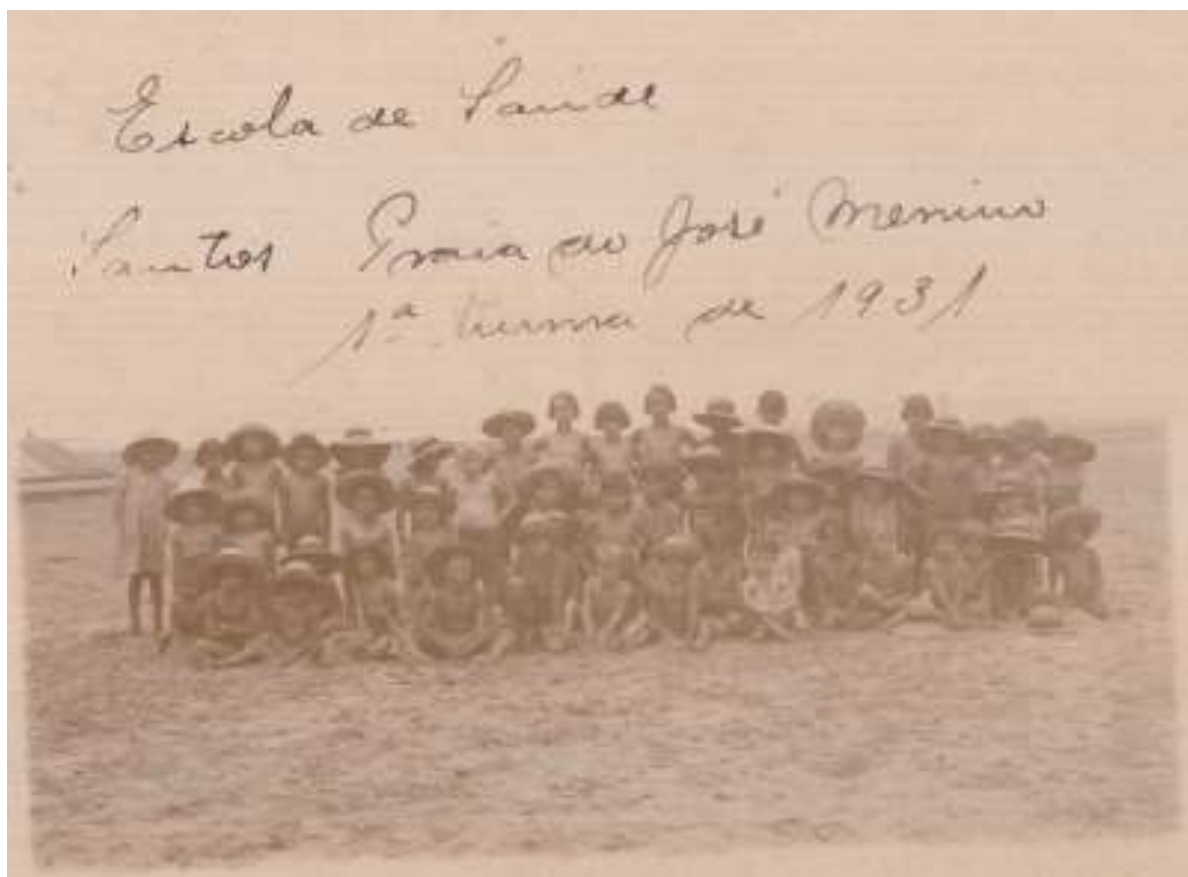 Escola de Saúde
Santos Praia do José Menino
1ª turma de 1931